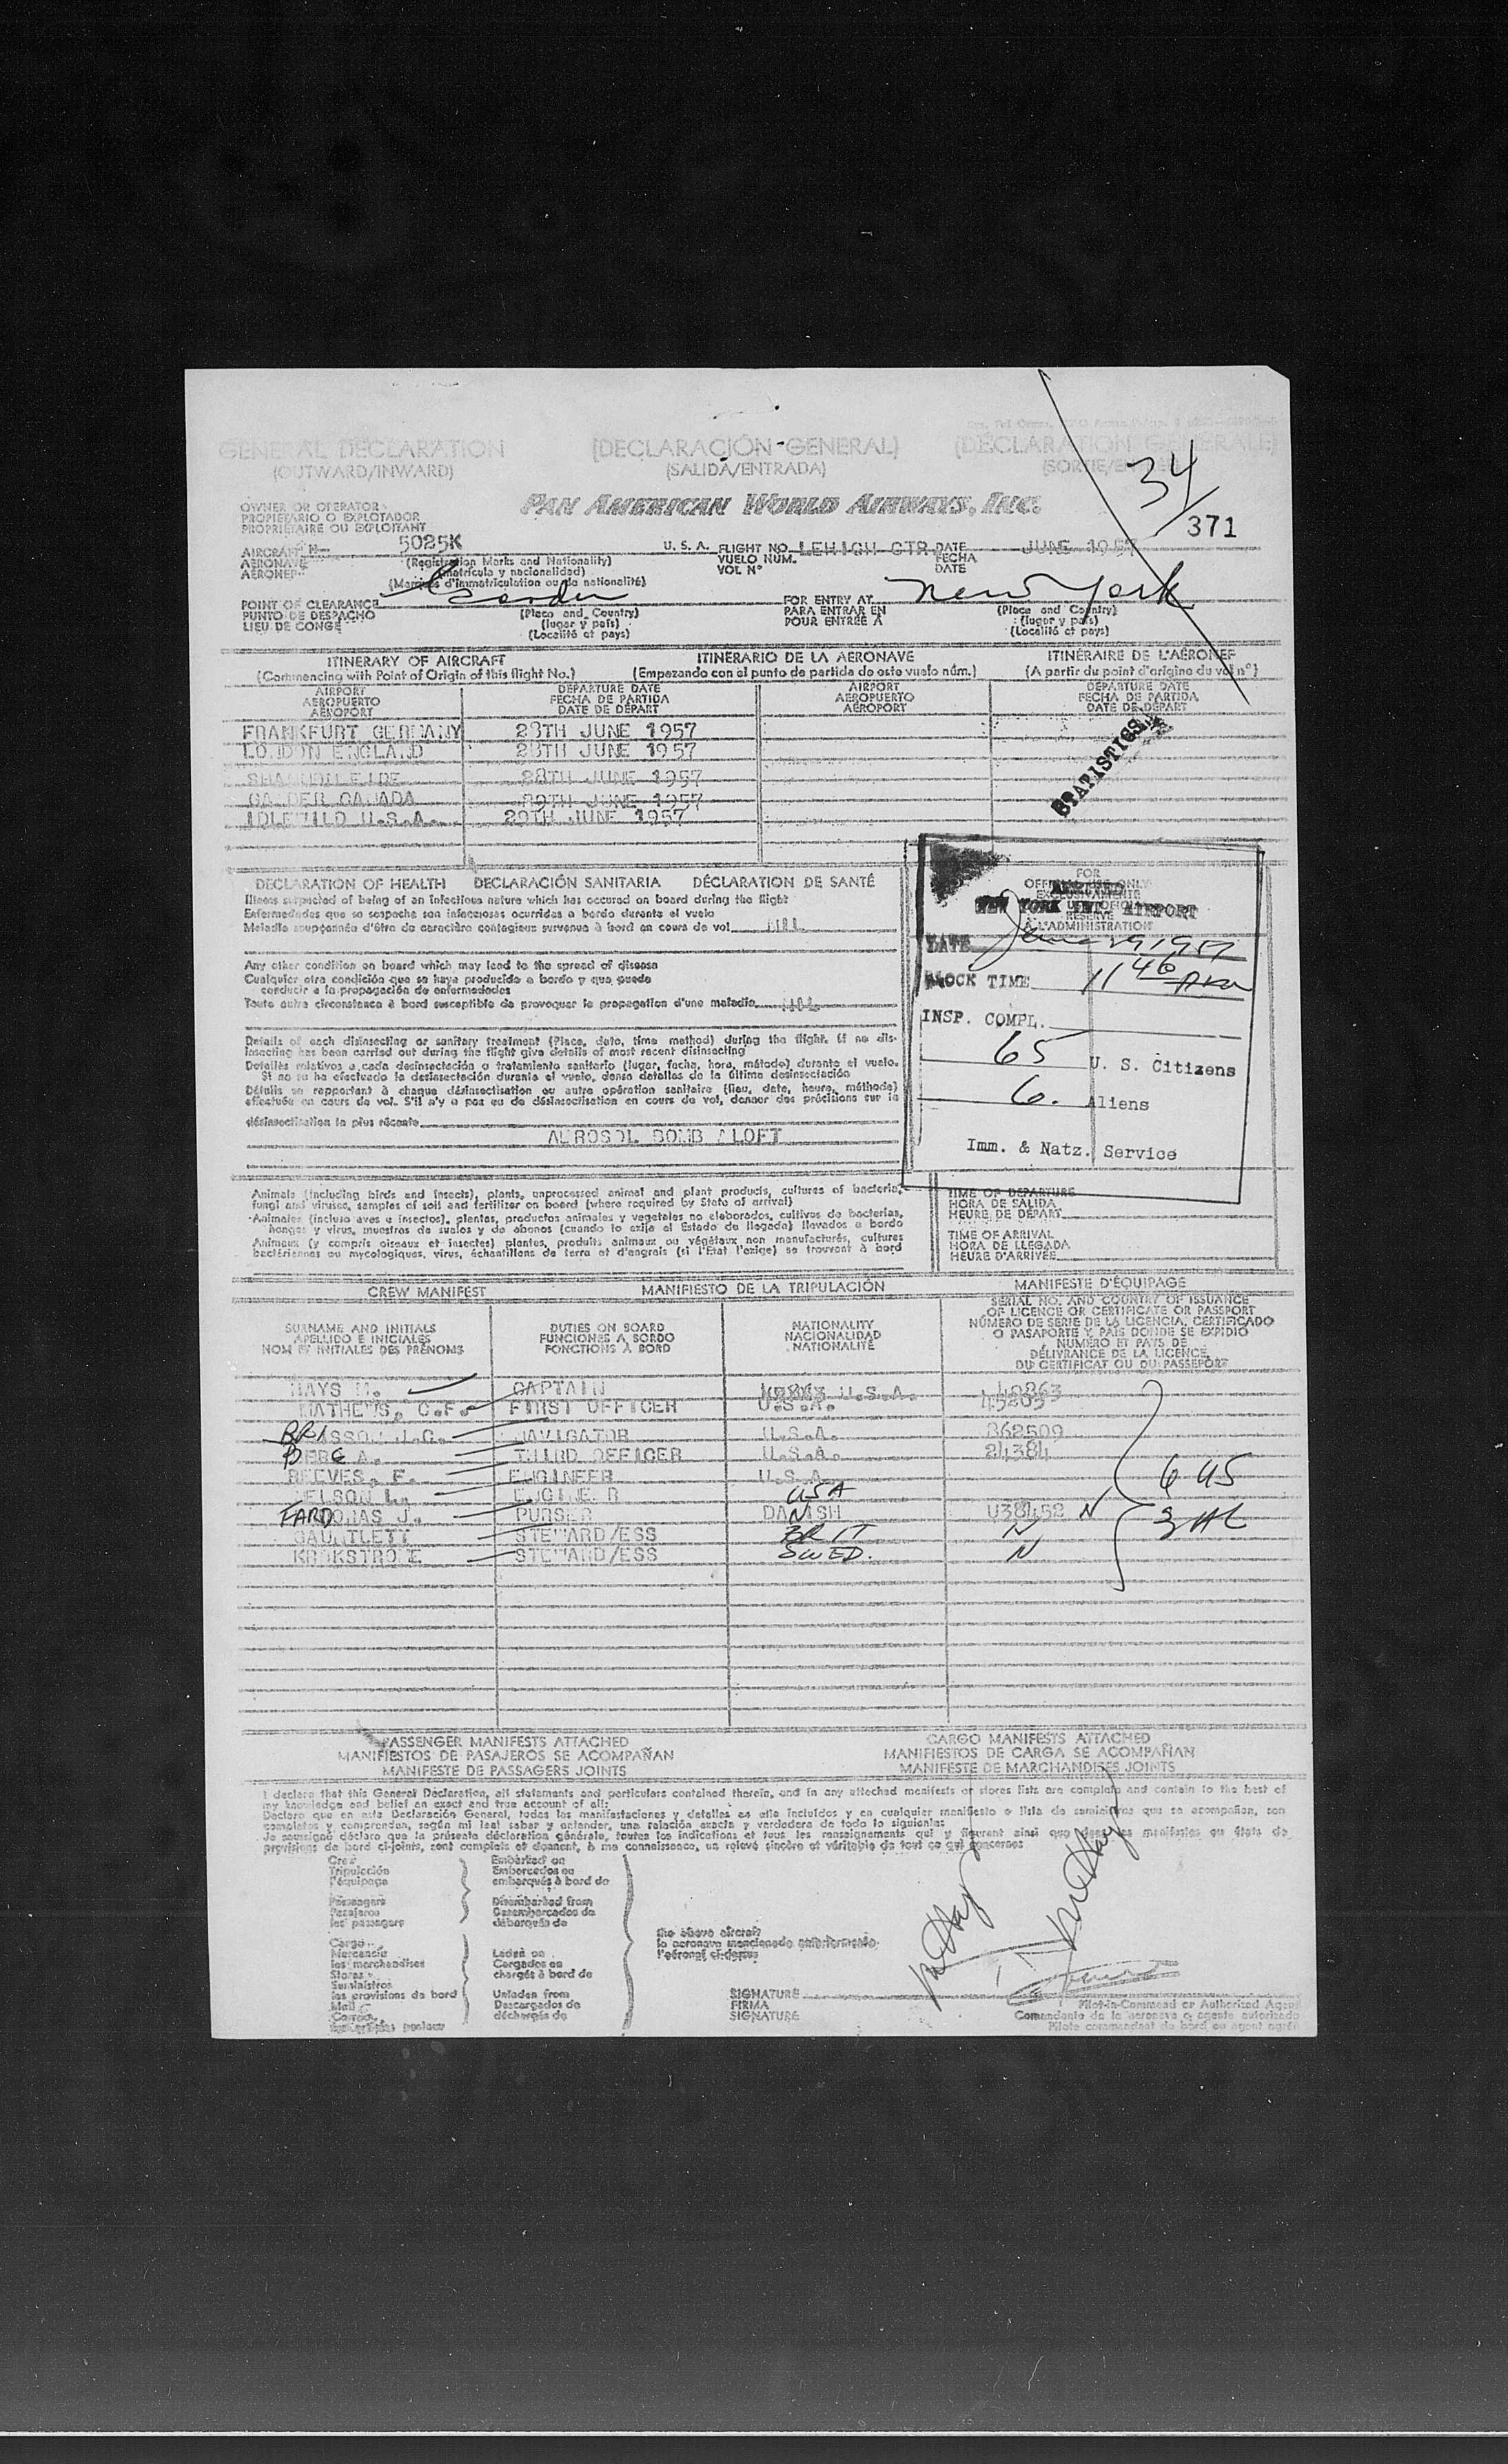 GENERAL DECLARATION (DECLARACIÓN GENERAL) (DÉCLARATION GENERALE)
(OUTWARD/INWARD) (SALIDA/ENTRADA)
34
371
OWNER OR OPERATOR
PROPIETARIO O EXPLOTADOR
PROPRIÉTAIRE OU EXPLOITANT
PAN AMERICAN WORLD AIRWAYS, INC.
AIRCRAFT N- 5025K U. S. A. FLIGHT NO. LEHIGH CTR DATE JUNE 1957
AERONAVE (Registration Marks and Nationality) VUELO NÚM. FECHA
AÉRONEF (matrícula y nacionalidad) VOL Nº DATE
(Marques d'immatriculation ou de nationalité)
POINT OF CLEARANCE FOR ENTRY AT New York
PUNTO DE DESPACHO (Place and Country) PARA ENTRAR EN (Place and Country)
LIEU DE CONGÉ (lugar y país) POUR ENTRÉE À (lugar y país)
(Localité et pays) (Localité et pays)
ITINERARY OF AIRCRAFT ITINERARIO DE LA AERONAVE ITINÉRAIRE DE L'AÉRONEF
(Commencing with Point of Origin of this flight No.) (Empezando con el punto de partida de este vuelo núm.) (A partir du point d'origine du vol nº)
AIRPORT DEPARTURE DATE AIRPORT DEPARTURE DATE
AEROPUERTO FECHA DE PARTIDA AEROPUERTO FECHA DE PARTIDA
AÉROPORT DATE DE DÉPART AÉROPORT DATE DE DÉPART
FRANKFURT GERMANY 28TH JUNE 1957
LONDON ENGLAND 28TH JUNE 1957
SHANNON EIRE 28TH JUNE 1957
GANDER CANADA 29TH JUNE 1957
IDLEWILD U.S.A. 29TH JUNE 1957
STATISTICS
DECLARATION OF HEALTH DECLARACIÓN SANITARIA DÉCLARATION DE SANTÉ
Illness suspected of being of an infectious nature which has occured on board during the flight
Enfermedades que se sospecha son infecciosas ocurridas a bordo durante el vuelo
Maladie soupçonnée d'être de caractère contagieux survenue à bord en cours de vol NIL
Any other condition on board which may lead to the spread of disease
Cualquier otra condición que se haya producido a bordo y que pueda
conducir a la propagación de enfermedades
Toute autre circonstance à bord susceptible de provoquer la propagation d'une maladie NIL
Details of each disinsecting or sanitary treatment (Place, date, time method) during the flight. If no dis-
insecting has been carried out during the flight give details of most recent disinsecting
Detalles relativos a cada desinsectación o tratamiento sanitario (lugar, fecha, hora, método) durante el vuelo.
Si no se ha efectuado la desinsectación durante el vuelo, dense detalles de la última desinsectación
Détails se rapportant à chaque désinsectisation ou autre opération sanitaire (lieu, date, heure, méthode)
effectuée en cours de vol. S'il n'y a pas eu de désinsectisation en cours de vol, donner des précisions sur la
désinsectisation la plus récente
AEROSOL BOMB ALOFT
FOR
OFFICIAL USE ONLY
EXCLUSIVAMENTE
RÉSERVÉ
À L'ADMINISTRATION
NEW YORK INTL AIRPORT
DATE June 29 1957
BLOCK TIME 11 46 AM
INSP. COMPL.
65 U. S. Citizens
6. Aliens
Imm. & Natz. Service
Animals (including birds and insects), plants, unprocessed animal and plant products, cultures of bacteria,
fungi and viruses, samples of soil and fertilizer on board (where required by State of arrival)
Animales (incluso aves e insectos), plantas, productos animales y vegetales no elaborados, cultivos de bacterias,
hongos y virus, muestras de suelos y de abonos (cuando lo exija el Estado de llegada) llevados a bordo
Animaux (y compris oiseaux et insectes) plantes, produits animaux ou végétaux non manufacturés, cultures
bactériennes ou mycologiques, virus, échantillons de terre et d'engrais (si l'État l'exige) se trouvant à bord
TIME OF DEPARTURE
HORA DE SALIDA
HEURE DE DÉPART
TIME OF ARRIVAL
HORA DE LLEGADA
HEURE D'ARRIVÉE
CREW MANIFEST MANIFIESTO DE LA TRIPULACIÓN MANIFESTE D'ÉQUIPAGE
SURNAME AND INITIALS
APELLIDO E INICIALES
NOM ET INITIALES DES PRÉNOMS
DUTIES ON BOARD
FUNCIONES A BORDO
FONCTIONS À BORD
NATIONALITY
NACIONALIDAD
NATIONALITÉ
SERIAL NO. AND COUNTRY OF ISSUANCE
OF LICENCE OR CERTIFICATE OR PASSPORT
NÚMERO DE SERIE DE LA LICENCIA, CERTIFICADO
O PASAPORTE Y PAIS DONDE SE EXPIDIÓ
NUMÉRO ET PAYS DE
DÉLIVRANCE DE LA LICENCE,
DU CERTIFICAT OU DU PASSEPORT
HAYS CAPTAIN U.S.A. 40863
MATHEWS. C.F. FIRST OFFICER U.S.A.
BRISSON J.G. NAVIGATOR U.S.A. 362509
BERG A. THIRD OFFICER U.S.A. 24384
REEVES. F. ENGINEER U.S.A
NELSON L. ENGINEER USA
J. PURSER DANISH U38452 N
GAUNTLETT STEWARD/ESS BRIT N
STEWARD/ESS SWED. N
6 US
PASSENGER MANIFESTS ATTACHED CARGO MANIFESTS ATTACHED
MANIFIESTOS DE PASAJEROS SE ACOMPAÑAN MANIFIESTOS DE CARGA SE ACOMPAÑAN
MANIFESTE DE PASSAGERS JOINTS MANIFESTE DE MARCHANDISES JOINTS
I declare that this General Declaration, all statements and particulars contained therein, and in any attached manifests or stores lists are complete and contain to the best of
my knowledge and belief an exact and true account of all:
Declaro que en esta Declaración General, todas las manifestaciones y detalles en ella incluidos y en cualquier manifiesto o lista de suministros que se acompañan, son
completos y comprenden, según mi leal saber y entender, una relación exacta y verdadera de todo lo siguiente:
Je soussigné déclare que la présente déclaration générale, toutes les indications et tous les renseignements qui y figurent ainsi que dans les manifestes ou états de
provisions de bord ci-joints, sont complets et donnent, à ma connaissance, un relevé sincère et véritable de tout ce qui concerne:
Crew
Tripulación
l'équipage
Passengers
Pasajeros
les passagers
Cargo
Mercancía
les marchandises
Stores
Suministros
les provisions de bord
Mail
Correo
Embarked on
Embarcados en
embarqués à bord de
Disembarked from
Desembarcados de
débarqués de
Laden on
Cargados en
chargés à bord de
Unladen from
Descargados de
déchargés de
the above aircraft
la aeronave mencionada anteriormente
l'aéronef ci-dessus
SIGNATURE
FIRMA
SIGNATURE
Pilot-in-Command or Authorized Agent
Comandante de la aeronave o agente autorizado
Pilote commandant de bord ou agent agréé